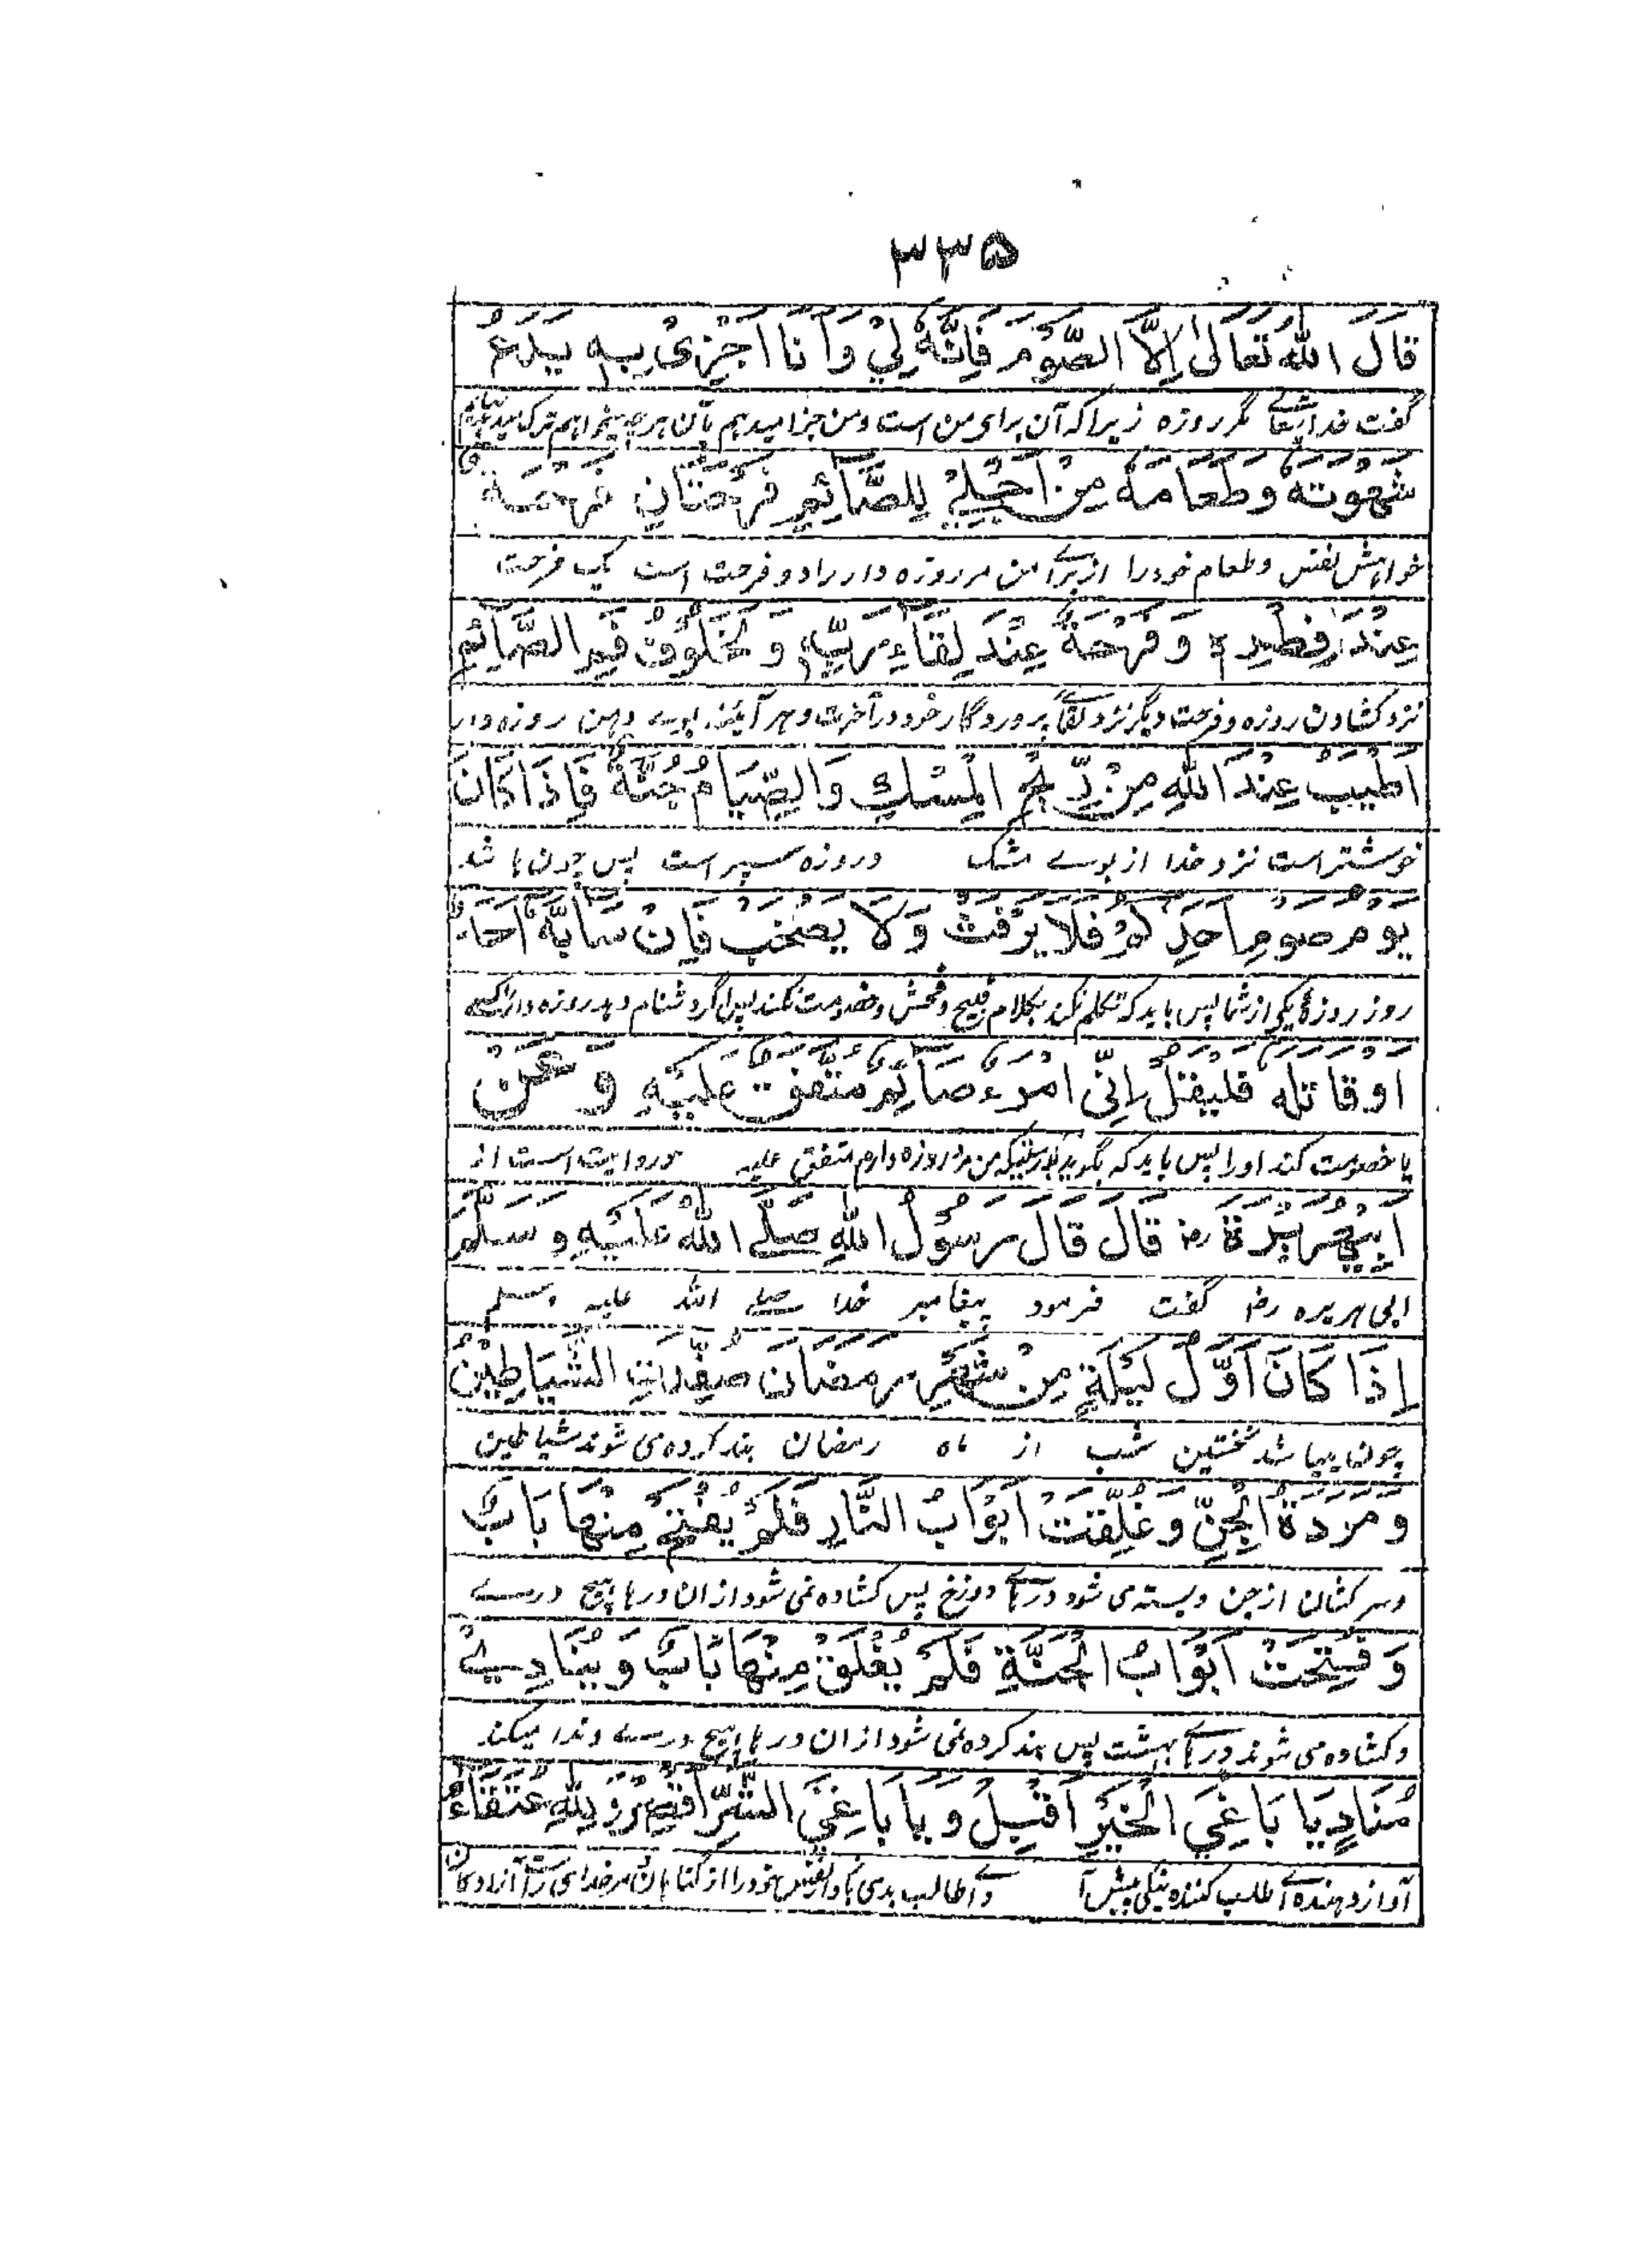 ۳۳۵
قَالَ اللهُ تَعَالٰى اِلَّا الصَّوْمَ فَاِنَّهٗ لِيْ وَاَنَا اَجْزِىْ بِهٖ يَدَعُ
گفت خدایتعالے مگر روزه زیرا که آن برای من است و من جزا میدهم بآن هر چه میخواهم ترک میدهد
شَهْوَتَهٗ وَطَعَامَهٗ مِنْ اَجْلِيْ لِلصَّآئِمِ فَرْحَتَانِ فَرْحَةٌ
خواهش نفس و طعام خود را از برائے من مر روزه دار را دو فرحت است یک فرحت
عِنْدَ فِطْرِهٖ وَفَرْحَةٌ عِنْدَ لِقَآءِ رَبِّهٖ وَلَخَلُوْفُ فَمِ الصَّآئِمِ
نزد کشادن روزه و فرحت دیگر نزد لقائے پروردگار خود در آخرت و هر آئینه بوے دهن روزه دار
اَطْيَبُ عِنْدَ اللهِ مِنْ رِّيْحِ الْمِسْكِ وَالصِّيَامُ جُنَّةٌ فَاِذَا كَانَ
خوشتر است نزد خدا از بوے مشک و روزه سپر است پس چون باشد
يَوْمُ صَوْمِ اَحَدِكُمْ فَلَا يَرْفَثْ وَلَا يَصْخَبْ فَاِنْ سَآبَّهٗ اَحَدٌ
روز روزهٔ یکی از شما پس باید که تکلم نکند بکلام قبیح و فحش و خصومت نکند پس اگر دشنام دهد روزه دار را کسے
اَوْ قَاتَلَهٗ فَلْيَقُلْ اِنِّى امْرَءٌ صَآئِمٌ مُتَّفَقٌ عَلَيْهِ وَعَنْ
یا خصومت کند او را پس باید که بگوید بدرستیکه من مرد روزه دارم متفق علیه و روایت است از
اَبِيْ هُرَيْرَةَ رض قَالَ قَالَ رَسُوْلُ اللهِ صَلَّے اللهُ عَلَيْهِ وَسَلَّمَ
ابی هریره رض گفت فرمود پیغامبر خدا صلے الله علیه وسلم
اِذَا كَانَ اَوَّلُ لَيْلَةٍ مِنْ شَهْرِ رَمَضَانَ صُفِّدَتِ الشَّيَاطِيْنُ
چون بیباشد نخستین شب از ماه رمضان بند کرده می شوند شیاطین
وَمَرَدَةُ الْجِنِّ وَغُلِّقَتْ اَبْوَابُ النَّارِ فَلَمْ يُفْتَحْ مِنْهَا بَابٌ
و سرکشان از جن و بسته می شود درہائے دوزخ پس کشاده نمی شود از ان درہا ہیچ درے
وَفُتِحَتْ اَبْوَابُ الْجَنَّةِ فَلَمْ يُغْلَقْ مِنْهَا بَابٌ وَيُنَادِيْ
و کشاده می شوند درہائے بہشت پس بند کرده نمی شود از ان درہا ہیچ درے و ندا میکند
مُنَادٍ يَا بَاغِيَ الْخَيْرِ اَقْبِلْ وَيَا بَاغِيَ الشَّرِّ اَقْصِرْ وَلِلّٰهِ عُتَقَآءُ
آواز دهنده اے طلب کننده نیکی پیش آ و اے طالب بدی باز دار نفس خود را از گناہان و مر خدای راست آزادگان